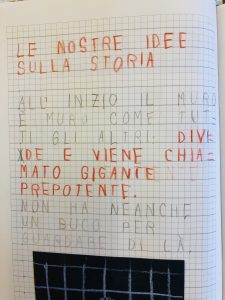 LE NOSTRE IDEE
SULLA STORIA
ALL' INIZIO IL MURO
È MURO COME TUT=
TI GLI ALTRI. DIVI
DE E VIENE CHIA=
MATO GIGANTE
PREPOTENTE.
NON HA NEANCHE
UN BUCO PER
GUARDARE DI LÀ.